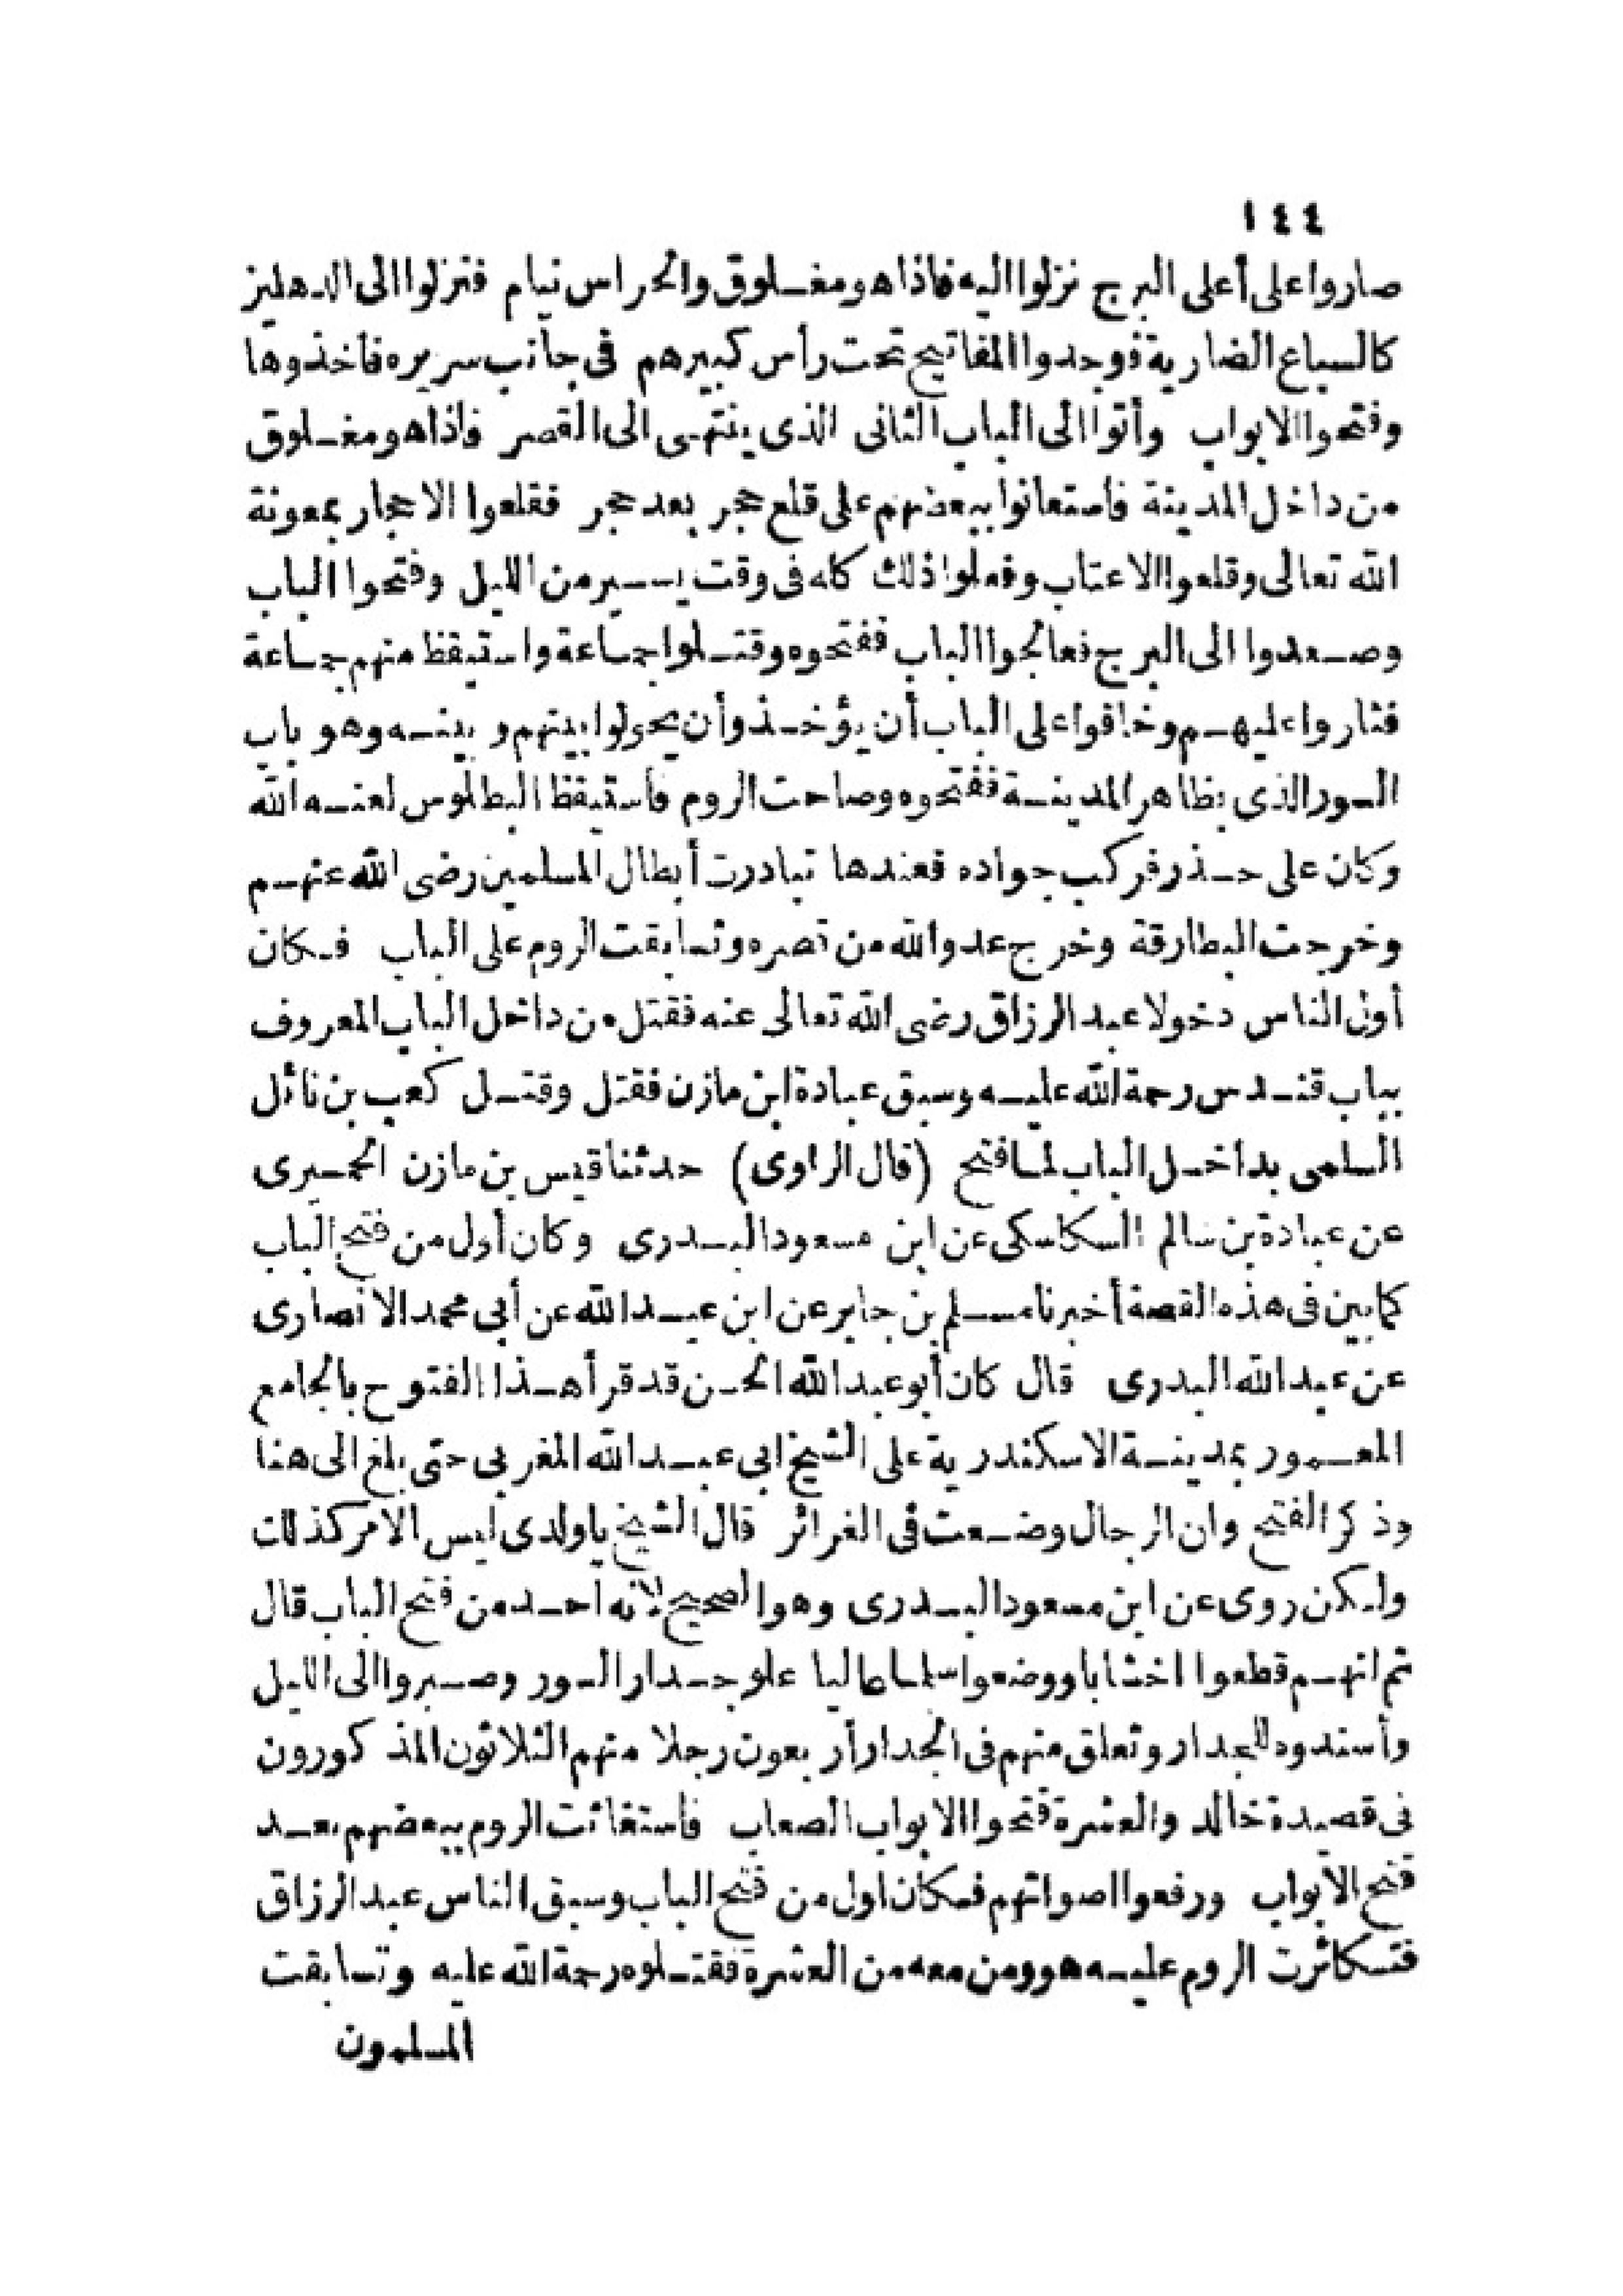 ١٤٤
صاروا على أعلى البرج نزلوا اليه فاذا هو مغلوق والحراس نيام فنزلوا الى الدهليز
كالسباع الضارية فوجدوا المفاتيح تحت رأس كبيرهم فى جانب سريره فأخذوها
وفتحوا الابواب وأتوا الى الباب الثانى الذى ينتهى الى القصر فاذا هو مغلوق
من داخل المدينة فاستعانوا ببعضهم على قلع حجر بعد حجر فقلعوا الاحجار بمعونة
الله تعالى وقلعوا الاعتاب وفعلوا ذلك كله فى وقت يسير من الليل وفتحوا الباب
وصعدوا الى البرج فعالجوا الباب ففتحوه وقتلوا جماعة واستيقظ منهم جماعة
فثاروا عليهم وخافوا على الباب أن يؤخذ وأن يحولوا بينهم و بينه وهو باب
السور الذى بظاهر المدينة ففتحوه وصاحت الروم فاستيقظ البطلوس لعنه الله
وكان على حذر فركب جواده فعندها تبادرت أبطال المسلمين رضى الله عنهم
وخرجت البطارقة وخرج عدو الله من قصره وتسابقت الروم على الباب فكان
أول الناس دخولا عبد الرزاق رضى الله تعالى عنه فقتل من داخل الباب المعروف
بباب قندس رحمة الله عليه وسبق عبادة ابن مازن فقتل وقتل كعب بن نائل
السلمى بداخل الباب لما فتح (قال الراوى) حدثنا قيس بن مازن الحميرى
عن عبادة بن سالم السكاسكى عن ابن مسعود البدرى وكان أول من فتح الباب
كما بين فى هذه القصة أخبرنا مسلم بن جابر عن ابن عبد الله عن أبى محمد الانصارى
عن عبد الله البدرى قال كان أبو عبد الله الحسن قد قرأ هذا الفتوح بالجامع
المعمور بمدينة الاسكندرية على الشيخ ابى عبد الله المغربى حتى بلغ الى هنا
وذكر الفتح وان الرجال وضعت فى الغرائر قال الشيخ ياولدى ليس الامر كذلك
ولكن روى عن ابن مسعود البدرى وهو الصحيح لانه أحد من فتح الباب قال
ثم انهم قطعوا اخشابا ووضعوا سلما عاليا علو جدار السور وصبروا الى الليل
وأسندوه للجدار وتعلق منهم فى الجدار أربعون رجلا منهم الثلاثون المذكورون
فى قصيدة خالد والعشرة فتحوا الابواب الصعاب فاستغاثت الروم ببعضهم بعد
فتح الابواب ورفعوا اصواتهم فكان اول من فتح الباب وسبق الناس عبد الرزاق
فتكاثرت الروم عليه هو ومن معه من العشرة فقتلوه رحمة الله عليه وتسابقت
المسلمون